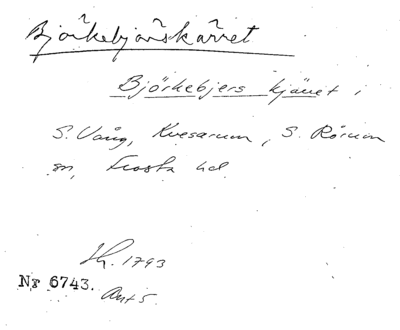 Björkebjärskärret
Björkebjers kjärret i
S. Vång, Kvesarum, S. Rörum
sn, Frosta hd
1793
Nr 6743.
Akt 5.